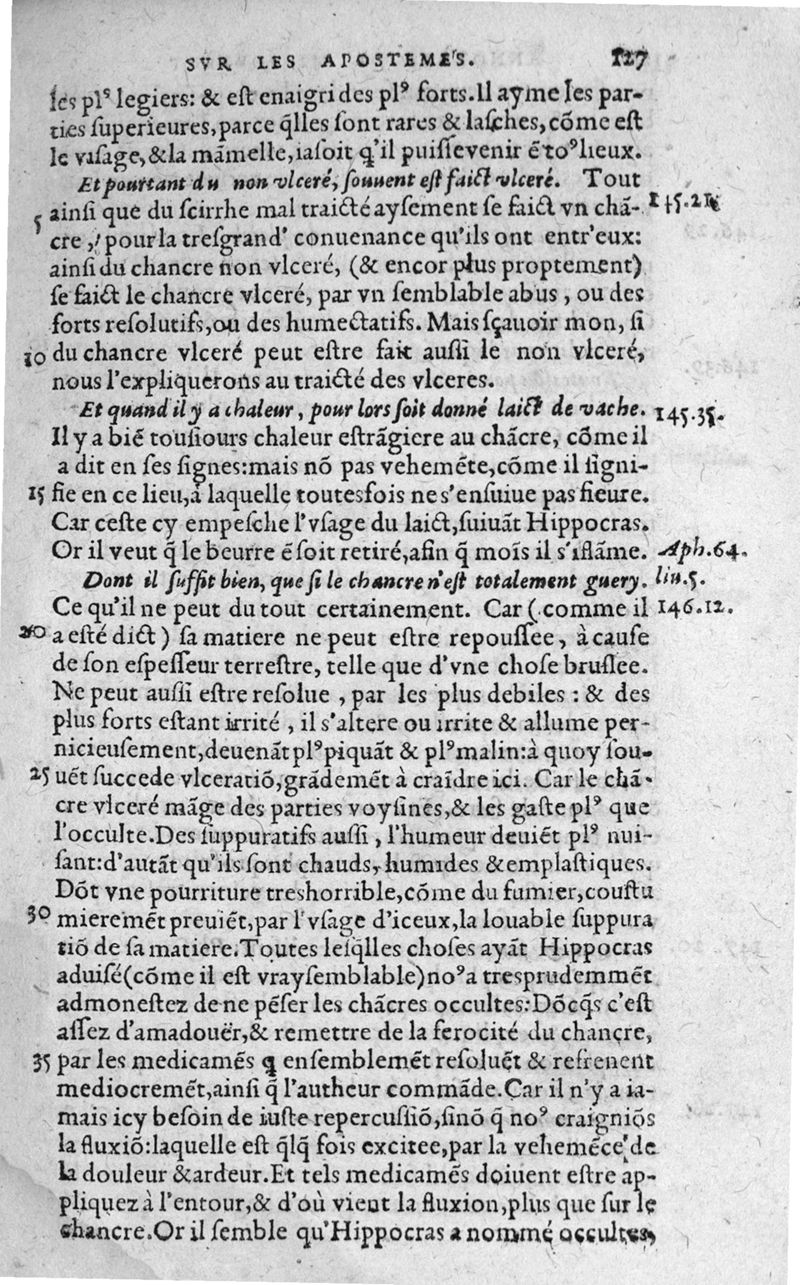 SVR LES APOSTEMES. 127
les plˢ legiers: & est enaigri des plꝰ forts. Il ayme les par-
ties superieures, parce q̃lles sont rares & lasches, cõme est
le visage, & la mãmelle, iaſoit q̃'il puiſſe venir ẽ toꝰ lieux.
Et pourtant du non vlceré, ſouuent eſt faict vlceré. Tout
5 ainſi que du ſcirrhe mal traicté ayſement ſe faict vn chã- 145.21.
cre, pour la treſgrand' conuenance qu'ils ont entr'eux:
ainſi du chancre non vlceré, (& encor plus proptement)
ſe faict le chancre vlceré, par vn ſemblable abus, ou des
forts reſolutifs, ou des humectatifs. Mais ſçauoir mon, ſi
10 du chancre vlceré peut eſtre fait auſſi le non vlceré,
nous l'expliquerons au traicté des vlceres.
Et quand il y a chaleur, pour lors ſoit donné laict de vache. 145.35.
Il y a biẽ touſiours chaleur eſtrãgiere au chãcre, cõme il
a dit en ſes ſignes: mais nõ pas vehemẽte, cõme il ſigni-
15 fie en ce lieu, à laquelle toutesfois ne s'enſuiue pas fieure.
Car ceſte cy empeſche l'vſage du laict, ſuiuãt Hippocras.
Or il veut q̃ le beurre ẽ ſoit retiré, afin q̃ moĩs il s'iflãme. Aph. 64.
Dont il ſuffit bien, que ſi le chancre n'eſt totalement guery. liu. 5.
Ce qu'il ne peut du tout certainement. Car (comme il 146.12.
20 a eſté dict) ſa matiere ne peut eſtre repouſſee, à cauſe
de ſon eſpeſſeur terreſtre, telle que d'vne choſe bruſlee.
Ne peut auſſi eſtre reſolue, par les plus debiles: & des
plus forts eſtant irrité, il s'altere ou irrite & allume per-
nicieuſement, deuenãt plꝰ piquãt & plꝰ malin: à quoy ſou-
25 uẽt ſuccede vlceratiõ, grãdemẽt à craĩdre ici. Car le chã-
cre vlceré mãge des parties voyſines, & les gaſte plꝰ que
l'occulte. Des ſuppuratifs auſſi, l'humeur deuiẽt plꝰ nui-
ſant: d'autãt qu'ils ſont chauds, humides & emplaſtiques.
Dõt vne pourriture treshorrible, cõme du fumier, couſtu
30 mieremẽt preuiẽt, par l'vſage d'iceux, la louable ſuppura
tiõ de ſa matiere. Toutes leſq̃lles choſes ayãt Hippocras
aduiſé (cõme il eſt vrayſemblable) noꝰ a tresprudemmẽt
admoneſtez de ne pẽſer les chãcres occultes: Dõcq̃s c'eſt
aſſez d'amadouër, & remettre de la ferocité du chancre,
35 par les medicamẽs q̃ enſemblemẽt reſoluẽt & refrenent
mediocremẽt, ainſi q̃ l'autheur commãde. Car il n'y a ia-
mais icy beſoin de iuſte repercuſſiõ, ſinõ q̃ noꝰ craigniõs
la fluxiõ: laquelle eſt q̃lq̃ fois excitee, par la vehemẽce de
la douleur & ardeur. Et tels medicamẽs doiuent eſtre ap-
pliquez à l'entour, & d'où vient la fluxion, plus que ſur le
chancre. Or il ſemble qu'Hippocras a nommé occultes,